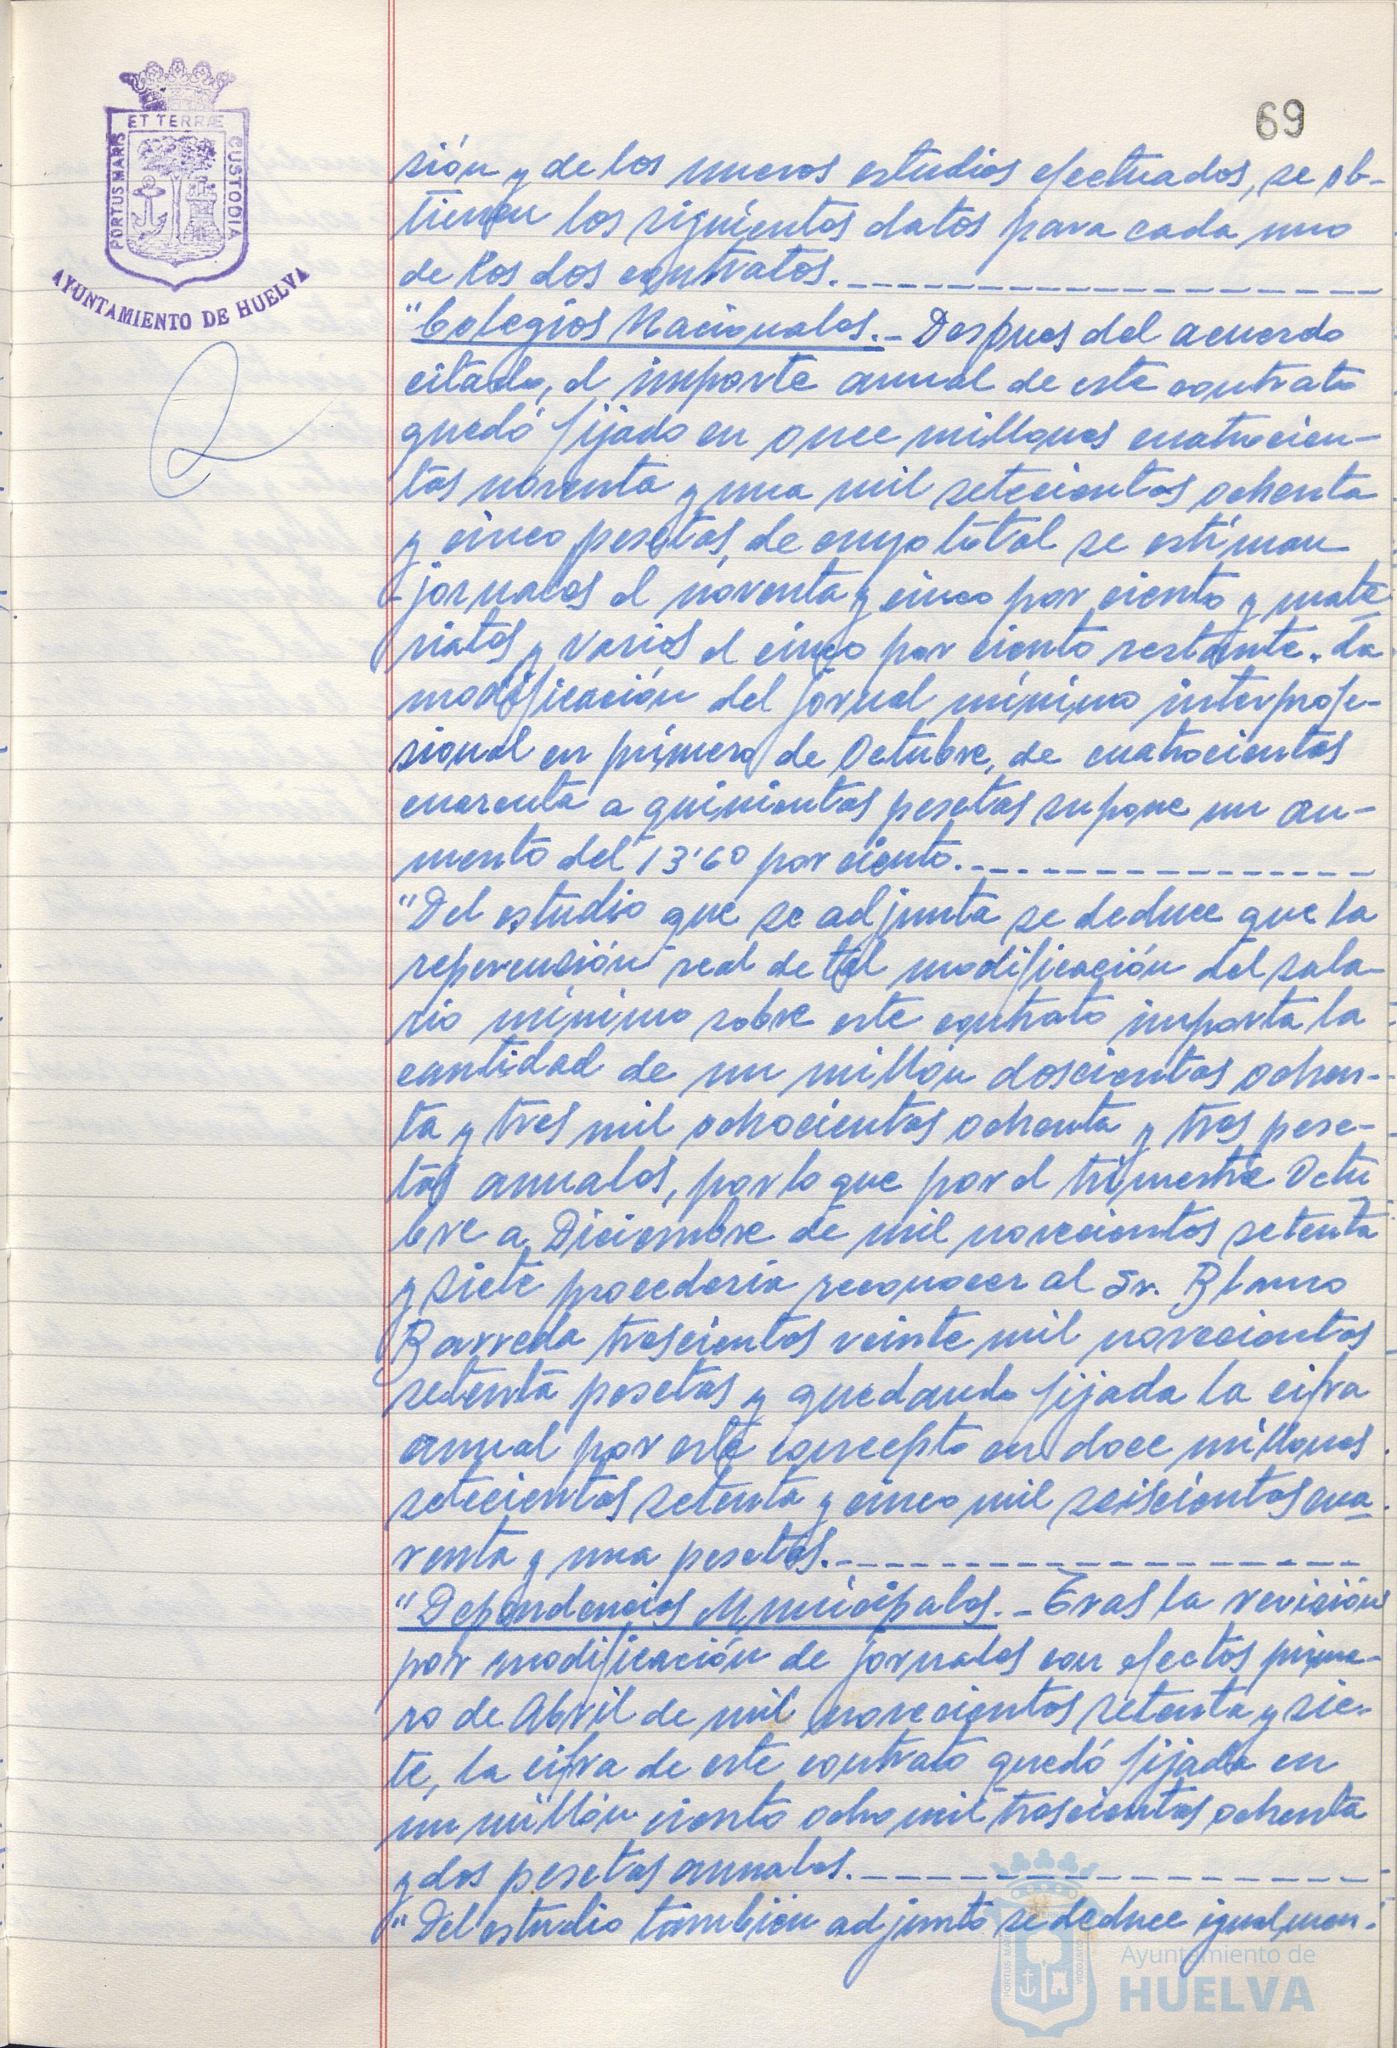 69
PORTUS MARIS ET TERRÆ CUSTODIA
AYUNTAMIENTO DE HUELVA
sión y de los nuevos estudios efectuados, se ob-
tienen los siguientes datos para cada uno
de los dos contratos.
"Colegios Nacionales.- Despues del acuerdo
citado, el importe anual de este contrato
quedó fijado en once millones cuatrocien-
tas noventa y una mil setecientas ochenta
y cinco pesetas, de cuyo total se estiman
jornales el noventa y cinco por ciento y mate-
riales y varios el cinco por ciento restante. La
modificación del jornal mínimo interprofe-
sional en primero de Octubre, de cuatrocientas
cuarenta a quinientas pesetas supone un au-
mento del 13'60 por ciento.
"Del estudio que se adjunta se deduce que la
repercusión real de tal modificación del sala-
rio mínimo sobre este contrato importa la
cantidad de un millón doscientas ochen-
ta y tres mil ochocientas ochenta y tres pese-
tas anuales, por lo que por el trimestre Octu
bre a Diciembre de mil novecientos setenta
y siete procedería reconocer al Sr. Blanco
Barreda trescientas veinte mil novecientas
setenta pesetas y quedando fijada la cifra
anual por este concepto en doce millones
setecientas setenta y cinco mil seiscientas cua-
renta y una pesetas.
"Dependencias Municipales.- Tras la revisión
por modificación de jornales con efectos prime-
ro de Abril de mil novecientos setenta y sie-
te, la cifra de este contrato quedó fijada en
un millón ciento ocho mil trescientas ochenta
y dos pesetas anuales.
"Del estudio también adjunto se deduce igualmen-
Ayuntamiento de
HUELVA